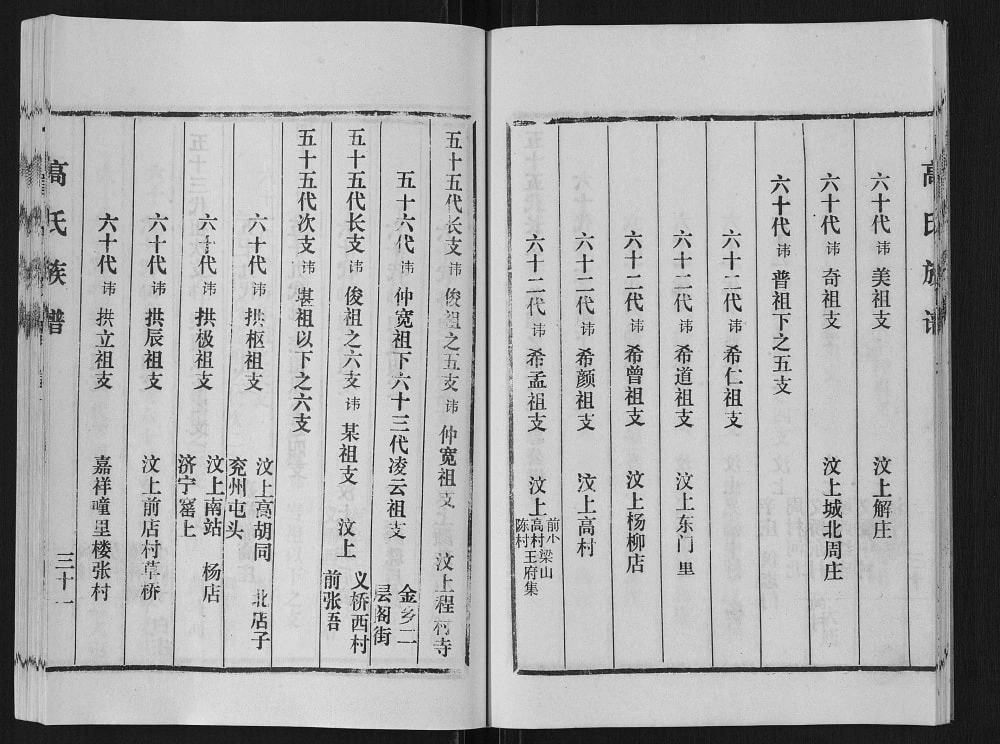 高氏族谱
六十代 讳 美祖支 汶上解庄
六十代 讳 奇祖支 汶上城北周庄
六十代 讳 普祖下之五支
六十二代 讳 希仁祖支
六十二代 讳 希道祖支 汶上东门里
六十二代 讳 希曾祖支 汶上杨柳店
六十二代 讳 希颜祖支 汶上高村
六十二代 讳 希孟祖支 汶上 前小梁山 高村王府集 陈村
五十五代长支 讳 俊祖之五支 讳 仲宽祖支 汶上程村寺
五十六代 讳 仲宽祖下六十三代凌云祖支 金乡二层阁街
五十五代长支 讳 俊祖之六支 讳 某祖支 汶上 义桥西村 前张吾
五十五代次支 讳 堪祖以下之六支
六十代 讳 拱枢祖支 汶上高胡同 北店子 兖州屯头
六十代 讳 拱极祖支 汶上南站 杨店 济宁窑上
六十代 讳 拱辰祖支 汶上前店村草桥
六十代 讳 拱立祖支 嘉祥疃里楼张村
高氏族谱
三十一